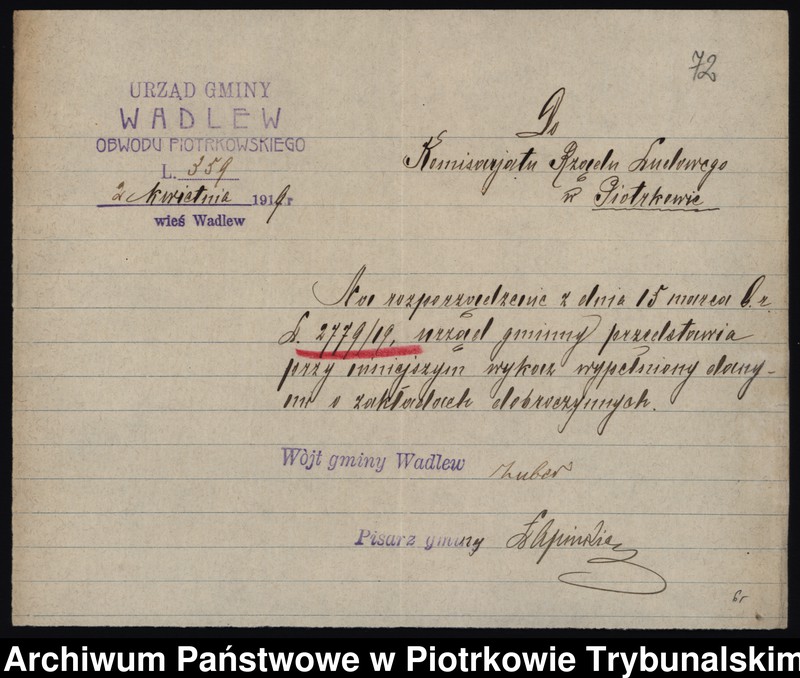 72
URZĄD GMINY
WADLEW
OBWODU PIOTRKOWSKIEGO
L. 359
2 kwietnia 1919 r
wieś Wadlew
Do
Komisarjatu Rządu Ludowego
w Piotrkowie
Na rozporządzenie z dnia 15 marca b. r.
L. 2779/19, urząd gminny przedstawia
przy niniejszym wykaz wypełniony dany-
mi o zakładach dobroczynnych.
Wójt gminy Wadlew
Pisarz gminy
Archiwum Państwowe w Piotrkowie Trybunalskim